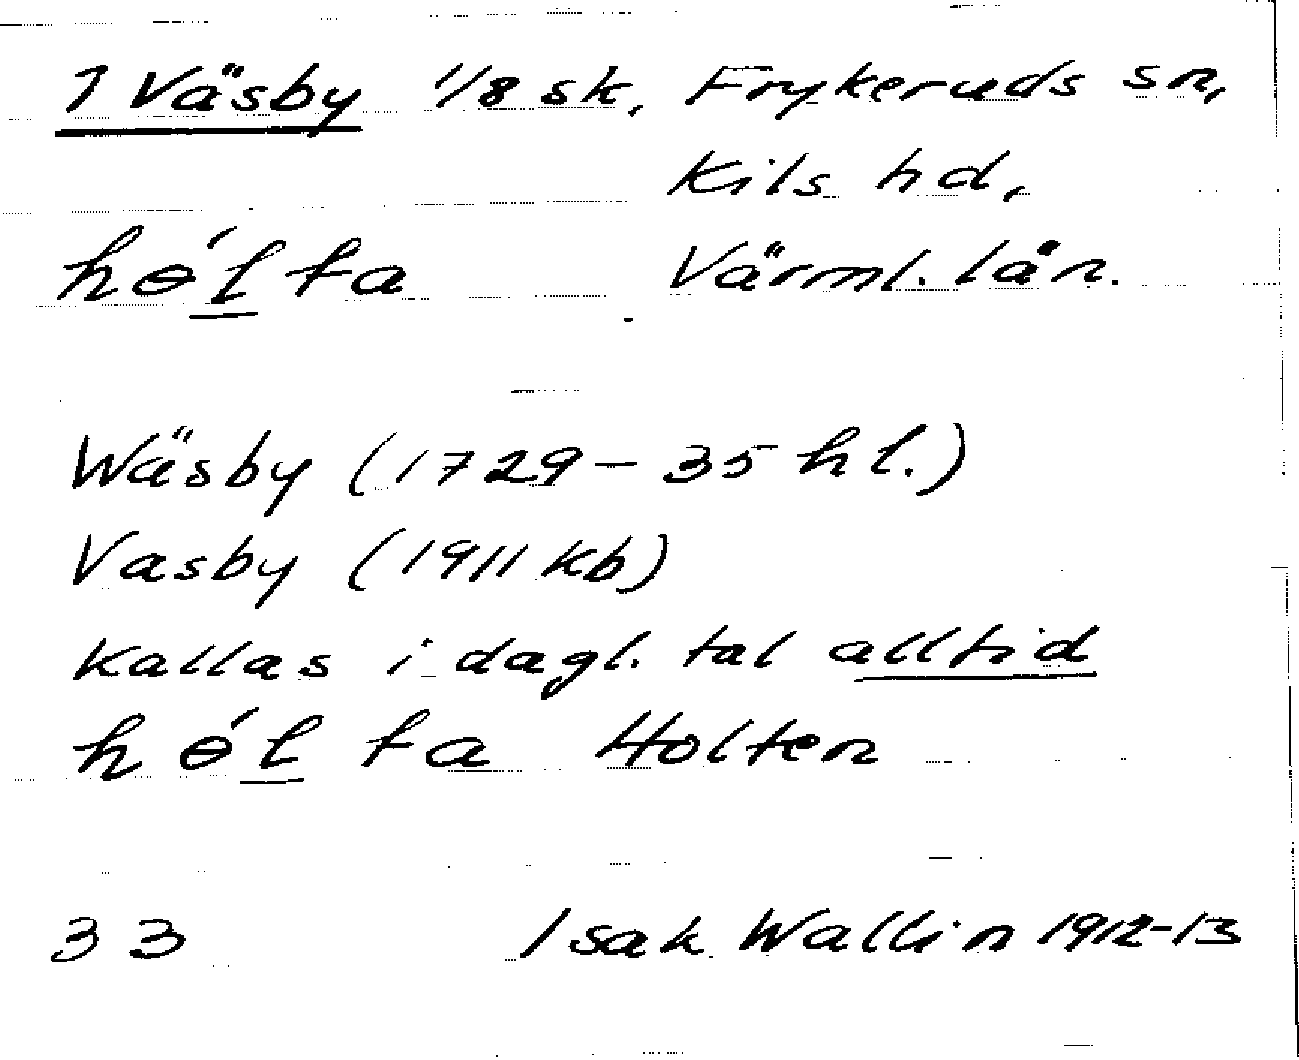 1 Väsby 1/8 sk. Frykeruds sn,
Kils hd.
hɵ́l ta Värml. län.
Wäsby (1729-35 hl.)
Vasby (1911 kb)
Kallas i dagl. tal alltid
hɵ́l ta Holten
33 Isak Wallin 1912-13